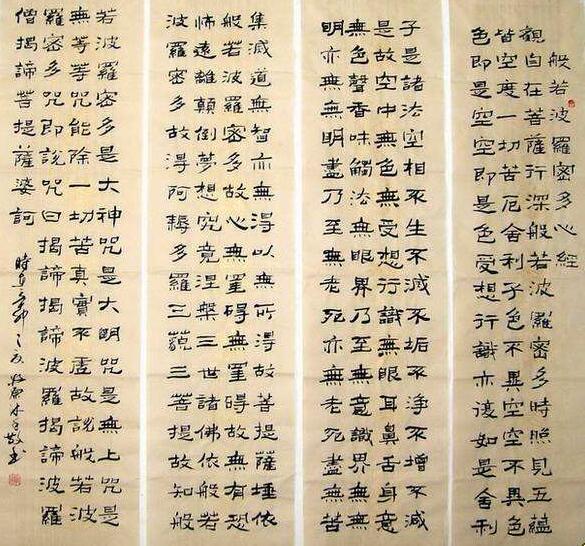 般若波羅密多心經
觀自在菩薩行深般若波羅密多時照見五蘊
皆空度一切苦厄舍利子色不異空空不異色
色即是空空即是色受想行識亦復如是舍利
子是諸法空相不生不滅不垢不淨不增不減
是故空中無色無受想行識無眼耳鼻舌身意
無色聲香味觸法無眼界乃至無意識界無無
明亦無無明盡乃至無老死亦無老死盡無苦
集滅道無智亦無得以無所得故菩提薩埵依
般若波羅密多故心無罣礙無罣礙故無有恐
怖遠離顛倒夢想究竟涅槃三世諸佛依般若
波羅密多故得阿耨多羅三藐三菩提故知般
若波羅密多是大神咒是大明咒是無上咒是
無等等咒能除一切苦真實不虛故說般若波
羅密多咒即說咒曰揭諦揭諦波羅揭諦波羅
僧揭諦菩提薩婆訶
時在辛卯之